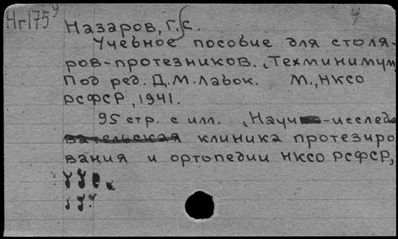 Нг175У
Назаров, Г.С.
Учебное пособие для столя-
ров-протезников. „Техминимум
Под ред. Д.М. Лавок. М., НКСО
РСФСР, 1941.
95 стр. с илл. „Науч -исследо
вательская клиника протезиро
вания и ортопедии НКСО РСФСР,